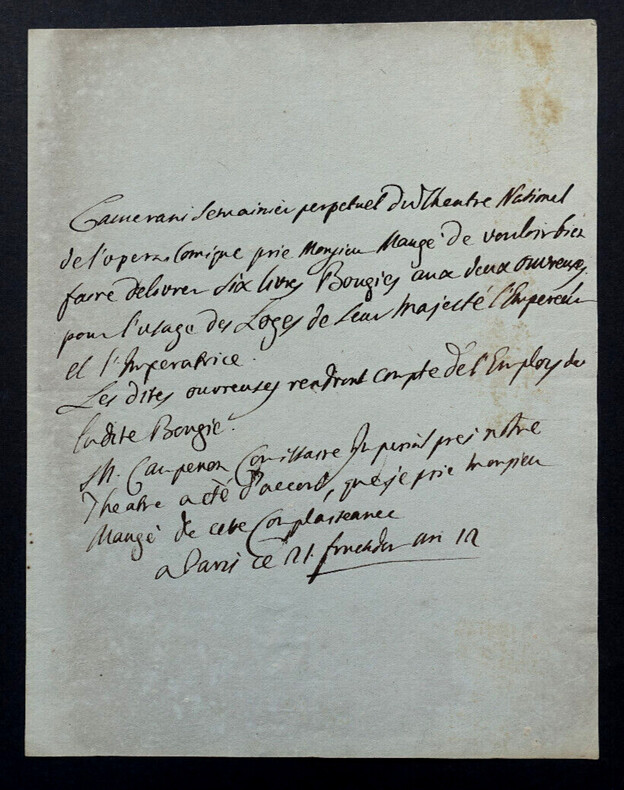 Camerani Semainier perpetuel du Theatre National
de l'opera Comique prie Monsieur Maugé de vouloir bien
faire delivrer six livres Bougies aux deux ouvreuses,
pour l'usage des Loges de Leur Majesté l'Empereur
et l'Imperatrice.
Les dites ouvreuses rendront compte de l'Employ de
ladite Bougie.
M. Campenon Comissaire Imperial pres notre
Theatre a eté d'accord, que je prie monsieur
Maugé de cette Complaisance
a Paris ce 21. fructidor an 12